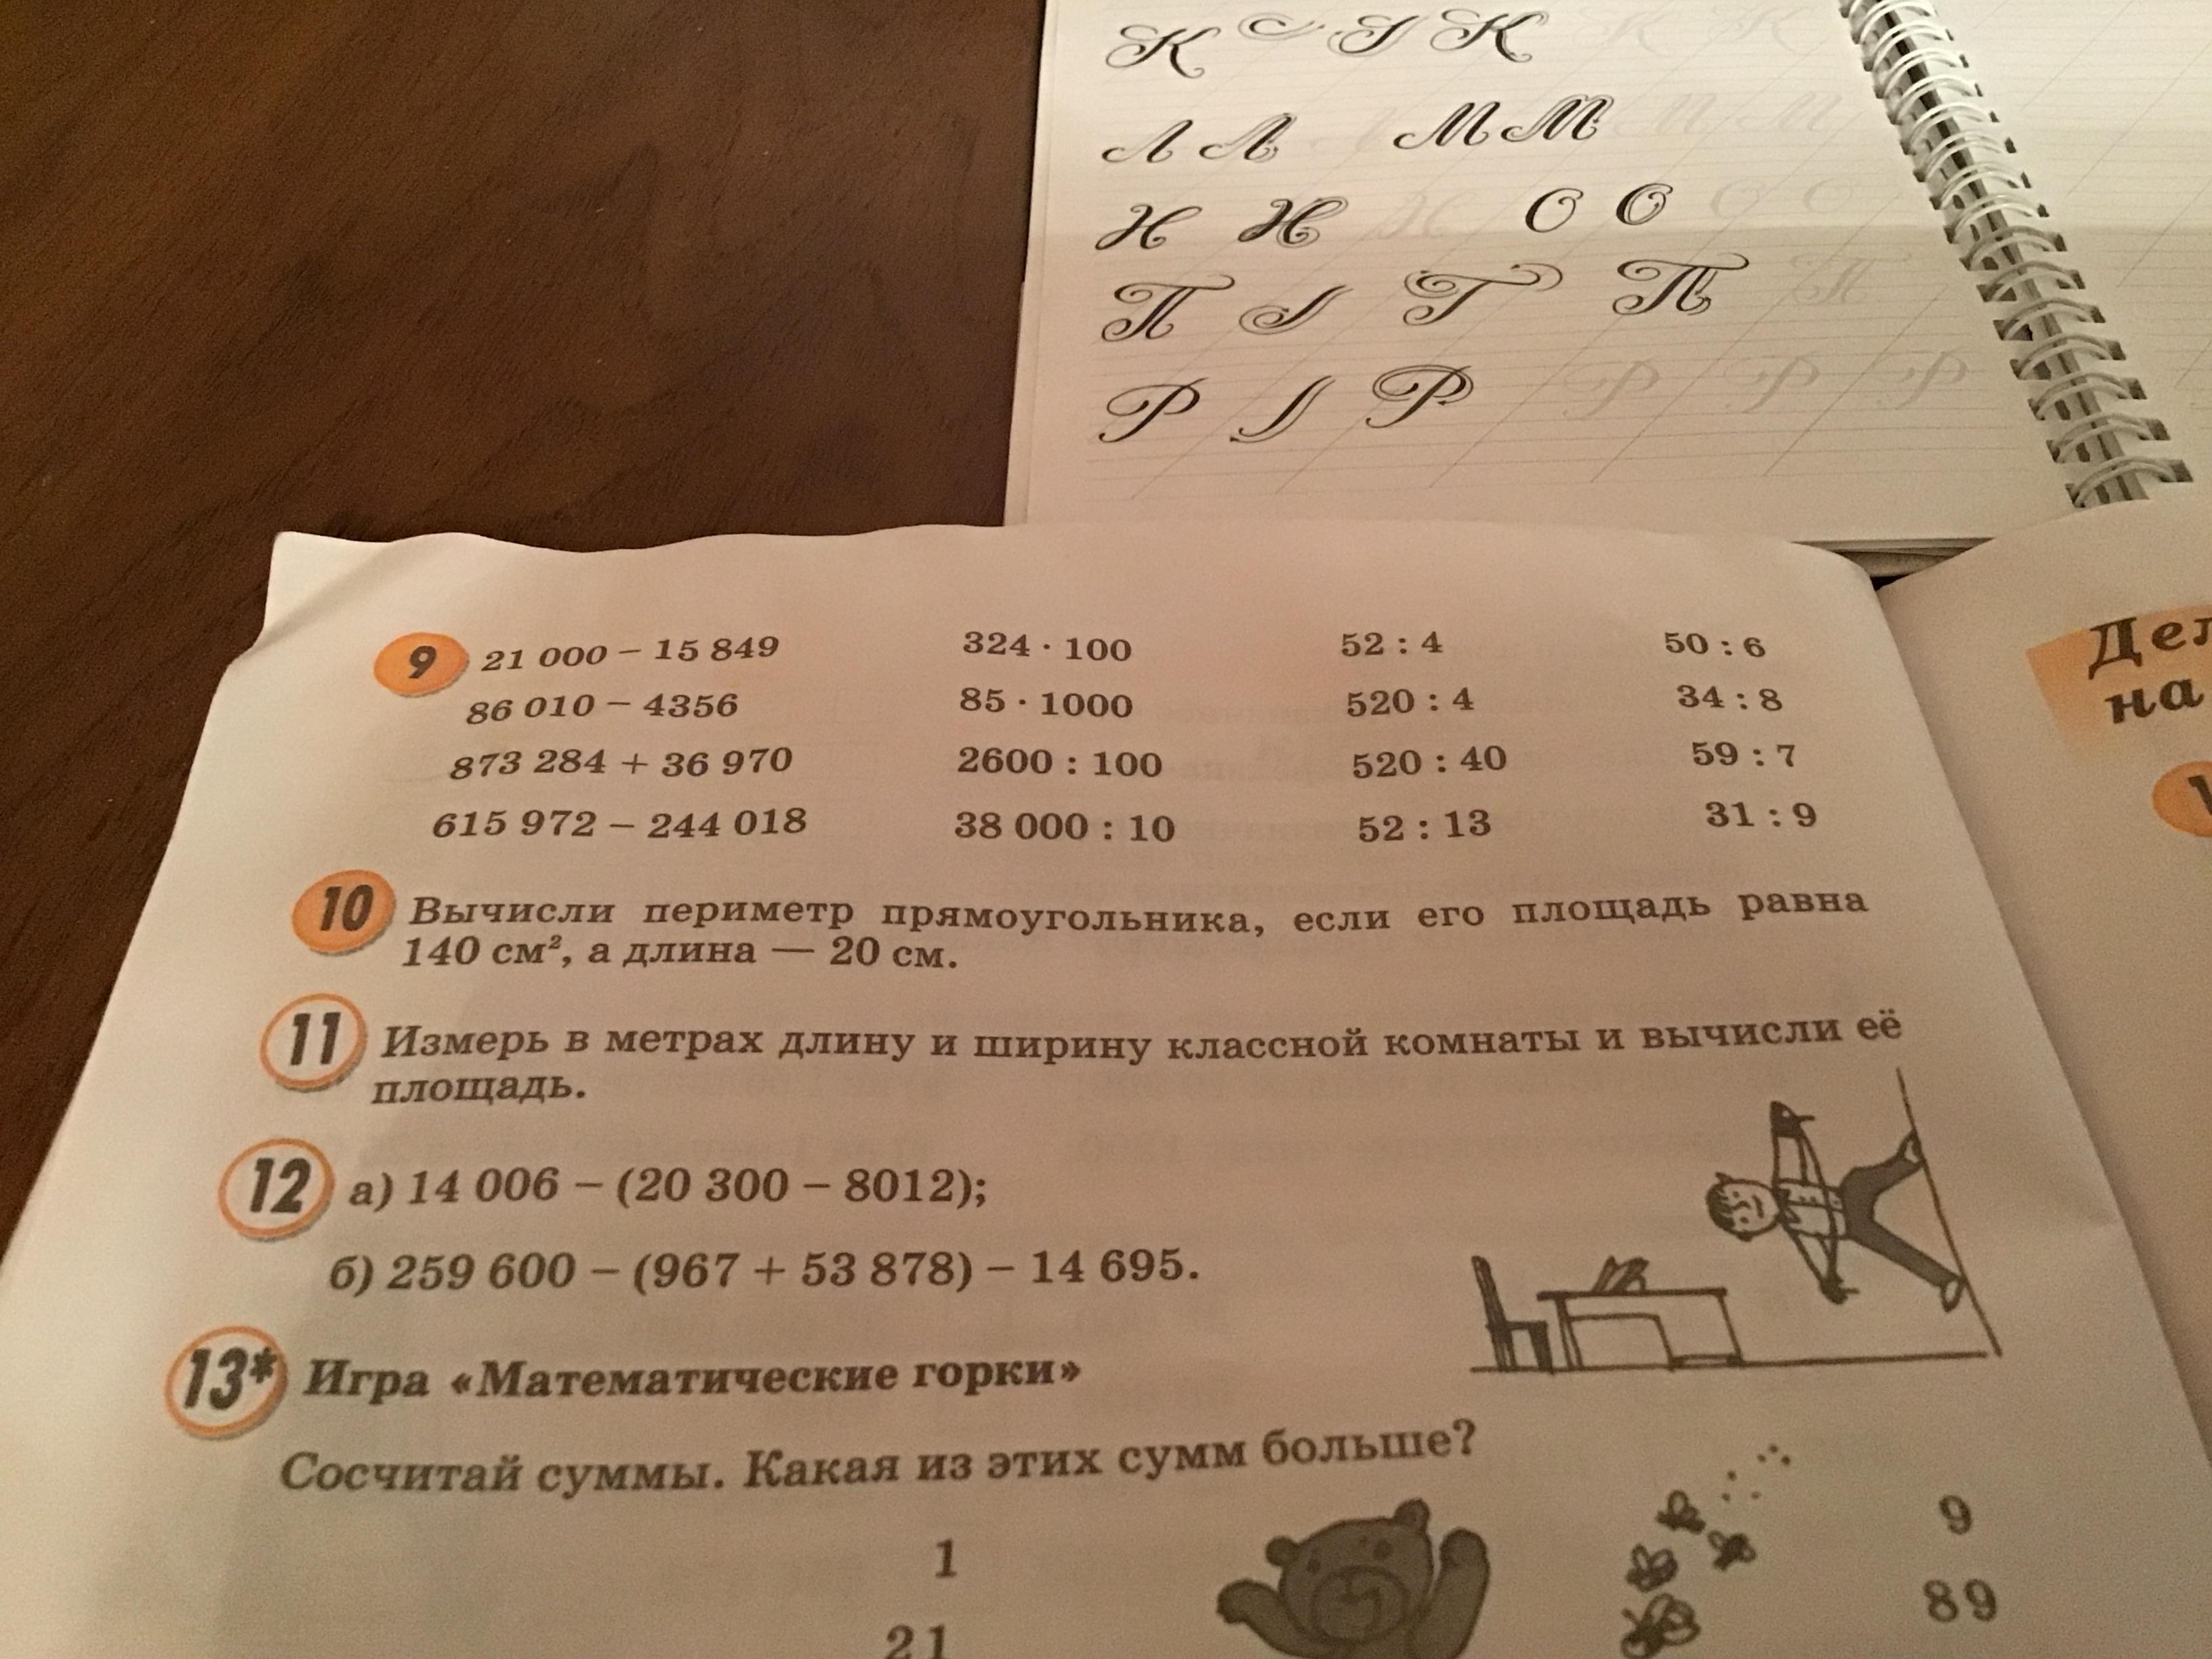 К К
Л Л М М
Н Н Н О О О О
П Г П П
Р Р Р Р Р
9 21 000 − 15 849 324 · 100 52 : 4 50 : 6
86 010 − 4356 85 · 1000 520 : 4 34 : 8
873 284 + 36 970 2600 : 100 520 : 40 59 : 7
615 972 − 244 018 38 000 : 10 52 : 13 31 : 9
10 Вычисли периметр прямоугольника, если его площадь равна
140 см², а длина — 20 см.
11 Измерь в метрах длину и ширину классной комнаты и вычисли её
площадь.
12 а) 14 006 − (20 300 − 8012);
б) 259 600 − (967 + 53 878) − 14 695.
13* Игра «Математические горки»
Сосчитай суммы. Какая из этих сумм больше?
1 9
21 89
на